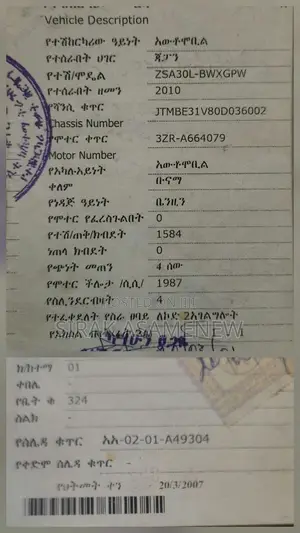 Vehicle Description
የተሽከርካሪው ዓይነት አውቶሞቢል
የተሰራበት ሀገር ጃፓን
የተሽ/ሞዴል ZSA30L-BWXGPW
የተሰራበት ዘመን 2010
የሻንሲ ቁጥር JTMBE31V80D036002
Chassis Number
የሞተር ቀጥር 3ZR-A664079
Motor Number
የአካሉአይነት አውቶሞቢል
ቀለም ቡናማ
የነዳጅ ዓይነት ቤንዚን
የሞተር የፈረስጉልበት 0
የተሽ/ጠቅ/ክብደት 1584
ነጠላ ክብደት 0
የጭነት መጠን 4 ሰው
የሞተር ችሎታ /ሲሲ/ 1987
የሲሊንደርብዛት 4
የተፈቀደለት የስራ ፀባይ ለኮድ 2አገልግሎት
SIRAK SAMENEW
ክ/ከተማ 01
ቀበሌ -
የቤት ቁ 324
ስልክ -
የሰሌዳ ቁጥር አአ-02-01-A49304
የቀድሞ ሰሌዳ ቁጥር -
የህትመት ቀን 20/3/2007